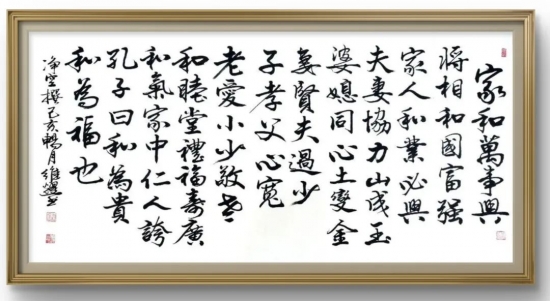 家和萬事興
将相和國富强
家人和業必興
夫妻協力山成玉
婆媳同心土變金
妻賢夫過少
子孝父心寬
老愛小少敬老
和睦堂禮福壽廣
和氣家中仁人誇
孔子曰和為貴
和為福也
净空撰己亥暢月維